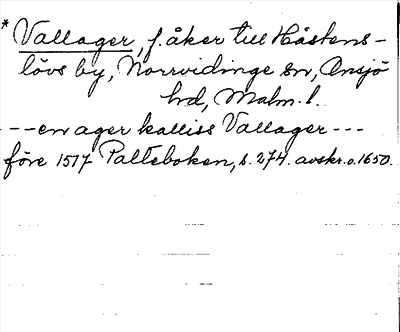 * Vallager, f. åker till Håstens-
lövs by, Norrvidinge sn, Onsjö
hd, Malm. l.
--- en ager kalliss Vallager ---
före 1517 Palteboken, s. 274. avskr. o. 1650.